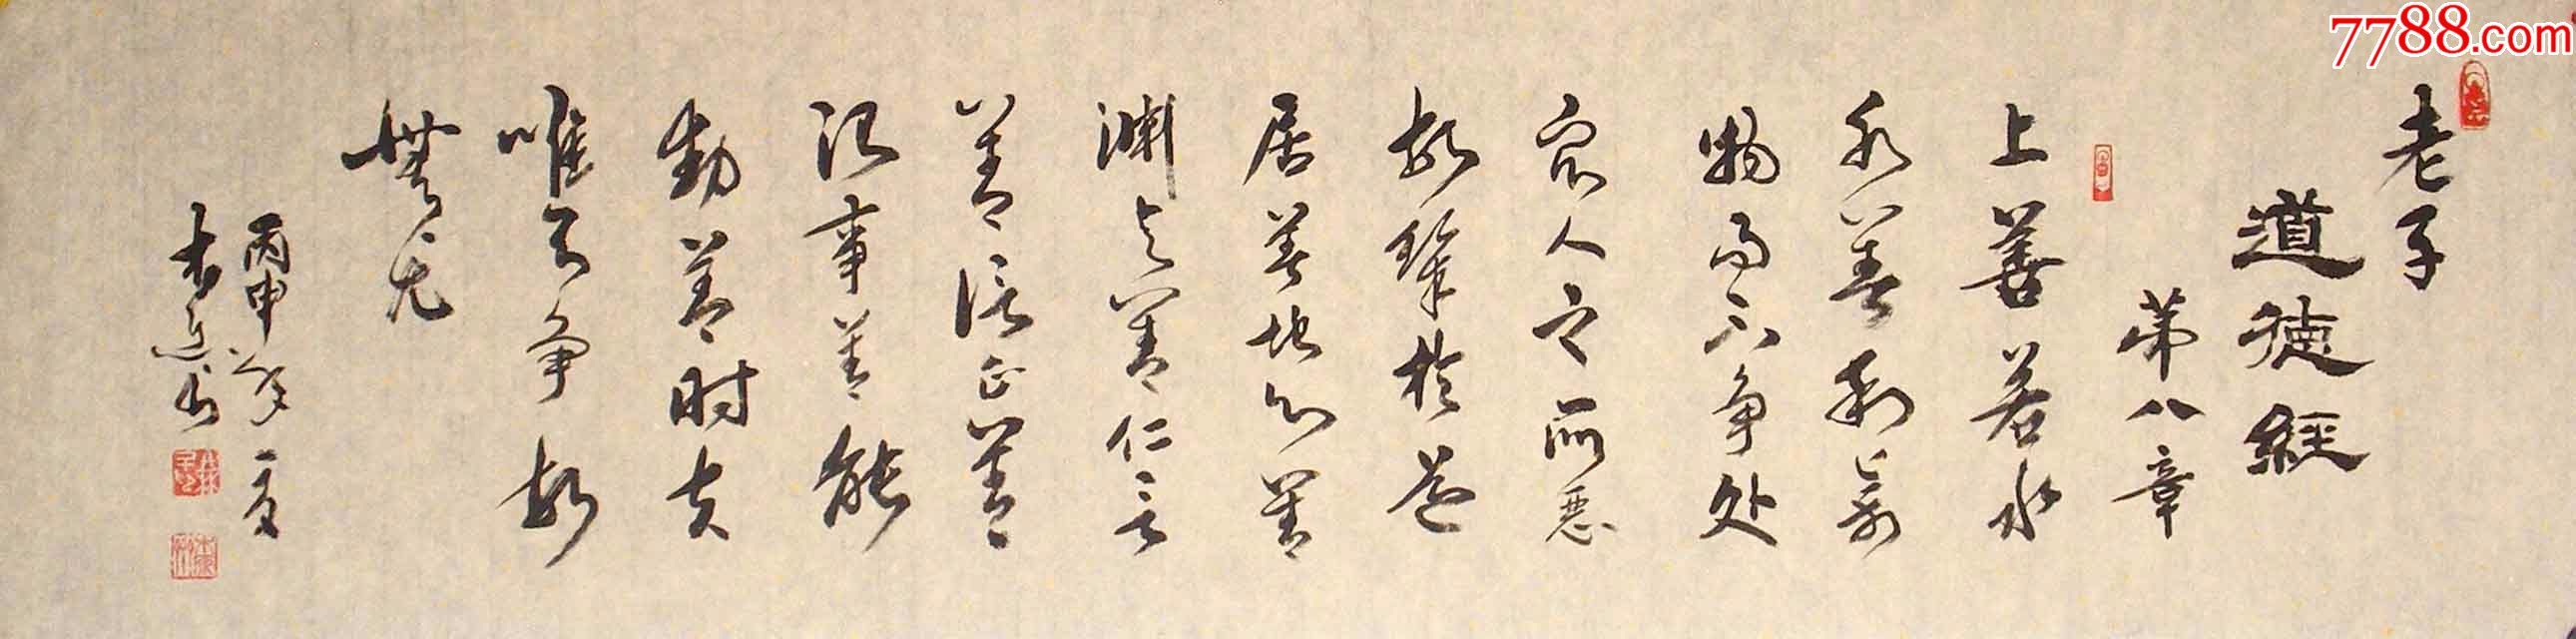 7788.com
老子
道德經
第八章
上善若水
水善利萬
物而不争处
衆人之所恶
故幾於道
居善地心善
渊与善仁言
善信正善
治事善能
動善时夫
唯不争故
無尤
丙申年夏
书